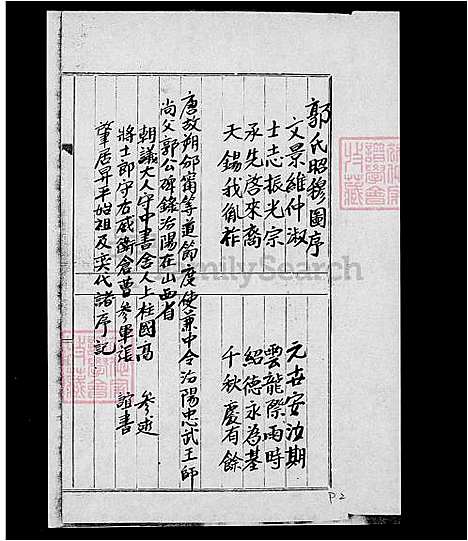 郭氏昭穆圖序
文景維仲淑 元世安汝期
士志振光宗 雲龍際雨時
承先啓來裔 紹德永為基
天錫我胤祚 千秋慶有餘
唐故朔邠甯等道節度使兼中令汾陽忠武王師
尚父郭公碑錄汾陽在山西省
朝議大人守中書舍人上柱國高 參述
將士郎守右威衛倉曹參軍張 誼書
肇居昇平始祖及奕代諸序記
P2
FamilySearch